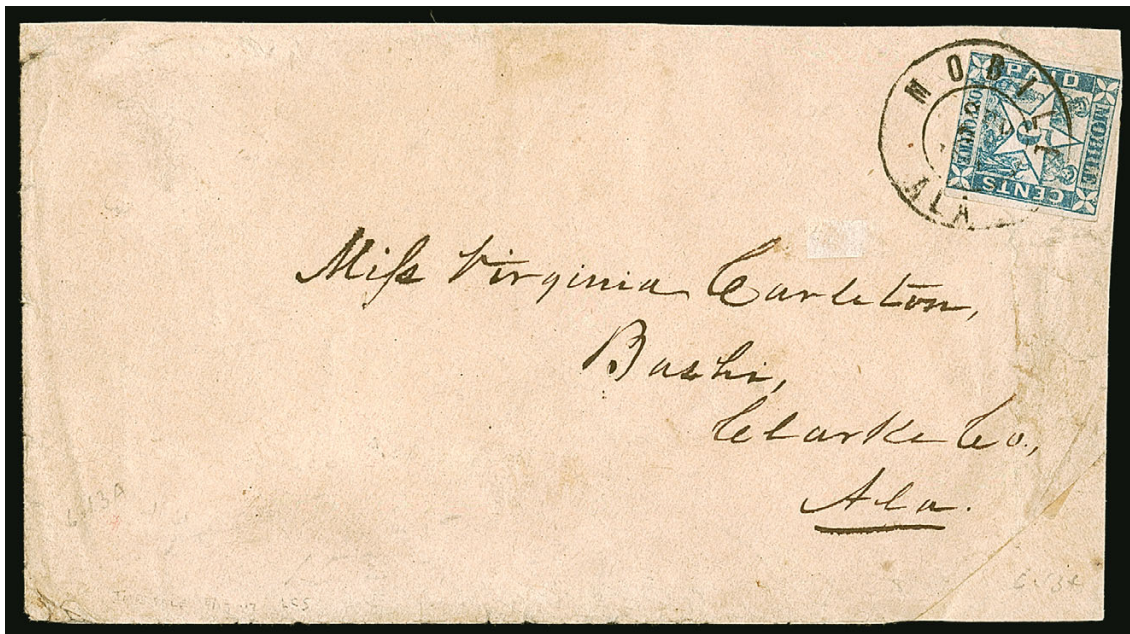 MOBILE
ALA
PAID
POST OFFICE
MOBILE
5
CENTS
Miſs Virginia Carleton,
Bashi,
Clarke Co.,
Ala.